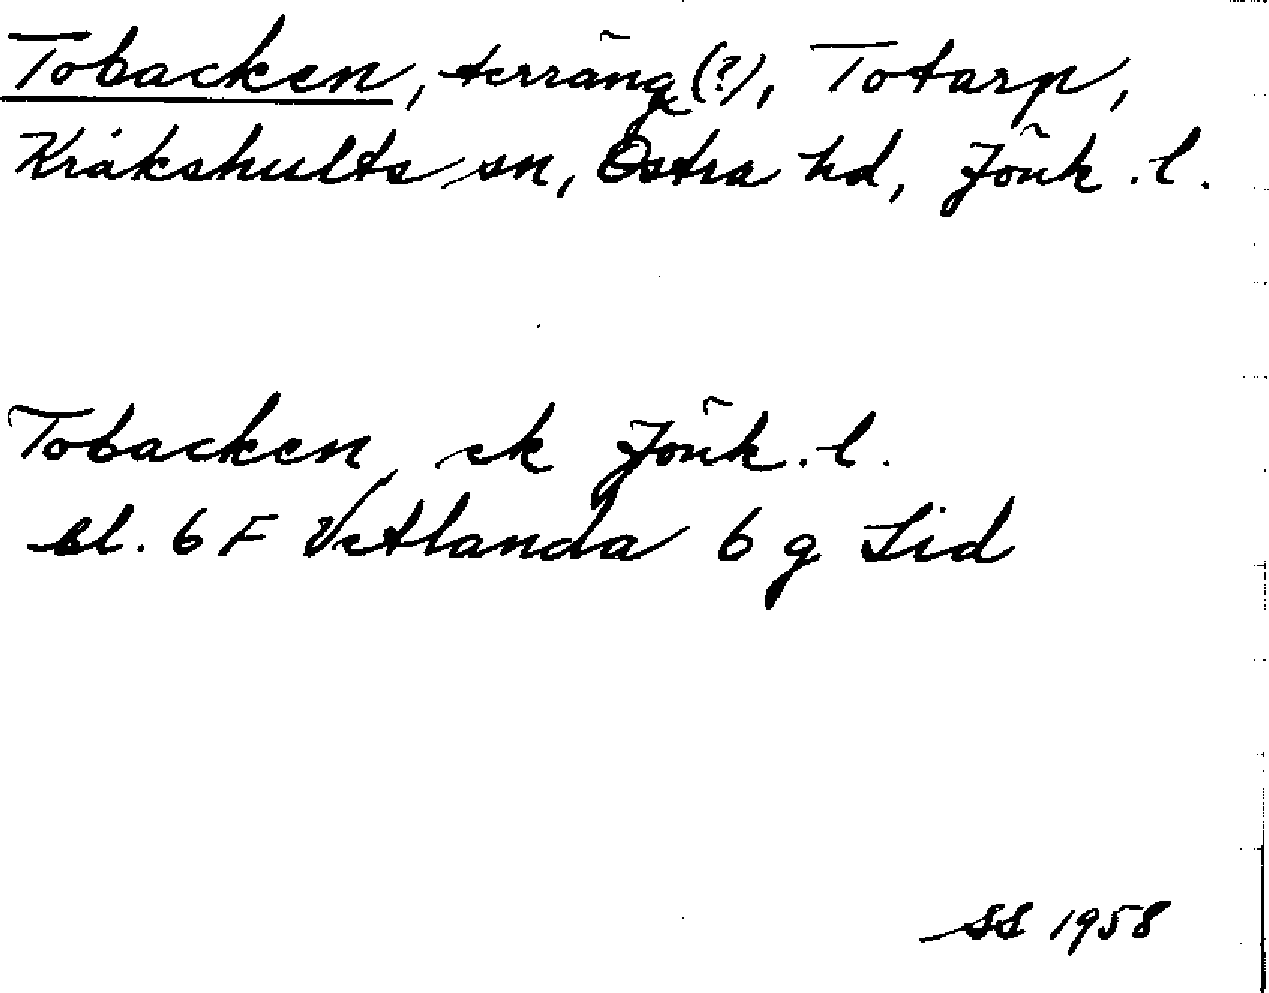 Tobacken, terräng (?), Totarp,
Kråkshults sn, Östra hd, Jönk. l.
Tobacken, ek Jönk. l.
bl. 6 F Vetlanda 6 g Lid
SS 1958